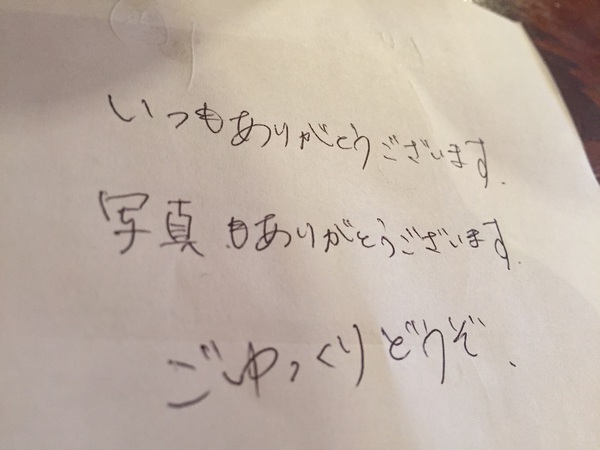 いつもありがとうございます.
写真もありがとうございます.
ごゆっくりどうぞ、